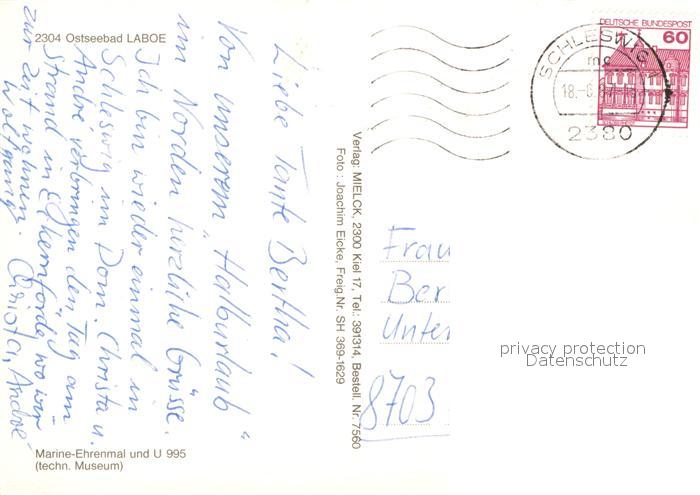 2304 Ostseebad LABOE
Liebe Tante Bertha!
Von unserem "Halburlaub"
im Norden herzliche Grüsse.
Ich bin wieder einmal in
Schleswig im Dom. Christa u.
André verbringen den Tag am
Strand in Eckernförde, wo wir
zur Zeit wohnen.
Wolfgang, Christa, André
Marine-Ehrenmal und U 995
(techn. Museum)
Verlag: MIELCK, 2300 Kiel 17, Tel.: 391314, Bestell. Nr. 7560
Foto: Joachim Eicke, Freig.Nr. SH 369-1629
DEUTSCHE BUNDESPOST
60
SCHLESWIG 1
mc
18.-6.
2380
Frau
Ber
Unter
8703
privacy protection
Datenschutz